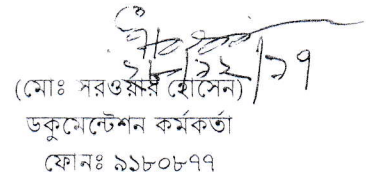 ২৮/১২/১৭
(মোঃ সরওয়ার হোসেন)
ডকুমেন্টেশন কর্মকর্তা
ফোনঃ ৯১৮০৮৭৭